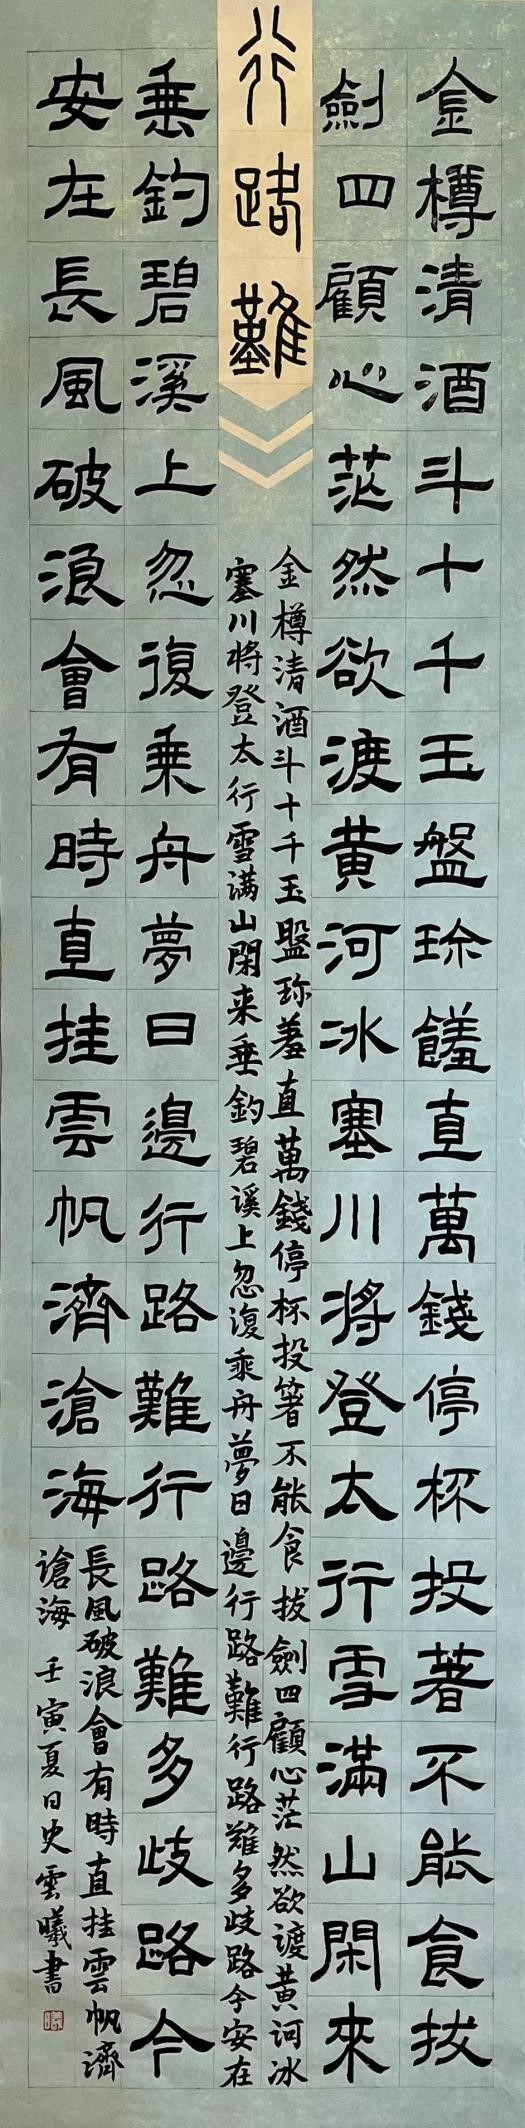 金樽清酒斗十千玉盤珎饈直萬錢停杯投著不能食拔
劍四顧心茫然欲渡黄河冰塞川將登太行雪滿山閑來
行路難
金樽清酒斗十千玉盤珎羞直萬錢停杯投箸不能食拔劍四顧心茫然欲渡黄河冰
塞川将登太行雪满山閑来垂釣碧溪上忽復乘舟夢日邊行路難行路難多歧路今安在
垂釣碧溪上忽復乘舟夢日邊行路難行路難多歧路今
安在長風破浪會有時直挂雲帆濟滄海
長風破浪會有時直挂雲帆濟
滄海 壬寅夏日史雲曦書